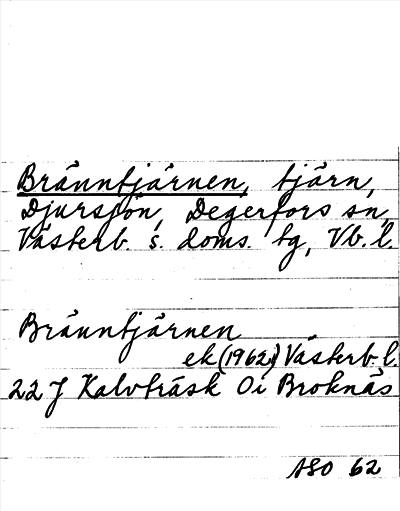 Bränntjärnen, tjärn,
Djursjön, Degerfors sn,
Västerb. s. doms. tg, Vb. l.
Bränntjärnen
ek (1962) Västerb. l.
22 J Kalvträsk 0i Broknäs
ASO 62